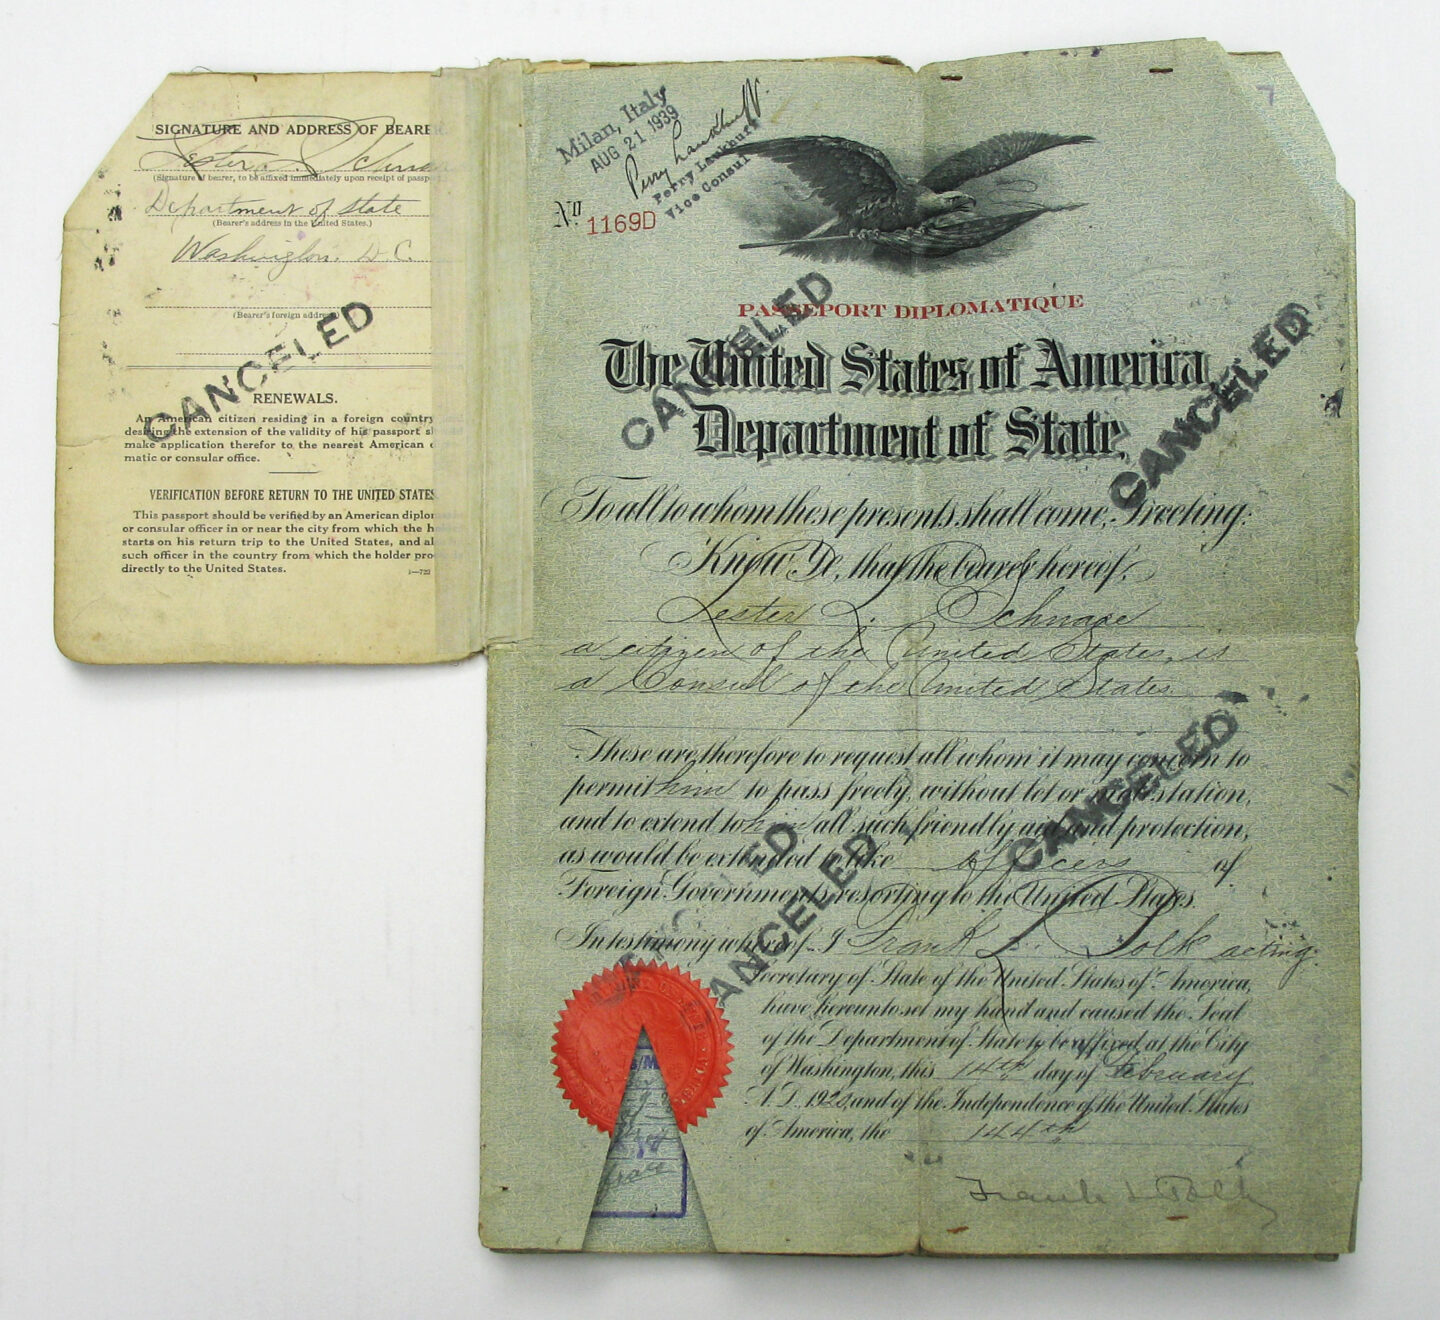 SIGNATURE AND ADDRESS OF BEARE
Lester L. Schna
(Signature of bearer, to be affixed immediately upon receipt of passp
Department of State
(Bearer's address in the United States.)
Washington. D. C.
(Bearer's foreign address)
CANCELED
RENEWALS.
An American citizen residing in a foreign country
desiring the extension of the validity of his passport s
make application therefor to the nearest American
matic or consular office.
VERIFICATION BEFORE RETURN TO THE UNITED STATES
This passport should be verified by an American diplo
or consular officer in or near the city from which the h
starts on his return trip to the United States, and al
such officer in the country from which the holder pro
directly to the United States.
Milan, Italy
AUG 21 1939
Vice Consul
No. 1169D
7
PASSEPORT DIPLOMATIQUE
CANCELED
CANCELED
The United States of America
Department of State,
To all to whom these presents shall come, Greeting:
Know Ye, that the bearer hereof,
Lester L. Schnare
a citizen of the United States, is
a Consul of the United States
These are therefore to request all whom it may concern to
permit him to pass freely, without let or molestation,
and to extend to him all such friendly aid and protection,
as would be extended to like officers of
Foreign Governments resorting to the United States.
CANCELED
CANCELED
In testimony whereof, I Frank L. Polk acting
Secretary of State of the United States of America,
have hereunto set my hand and caused the Seal
of the Department of State to be affixed at the City
of Washington, this 14th day of February
A.D. 1920, and of the Independence of the United States
of America, the 144th
Frank L Polk